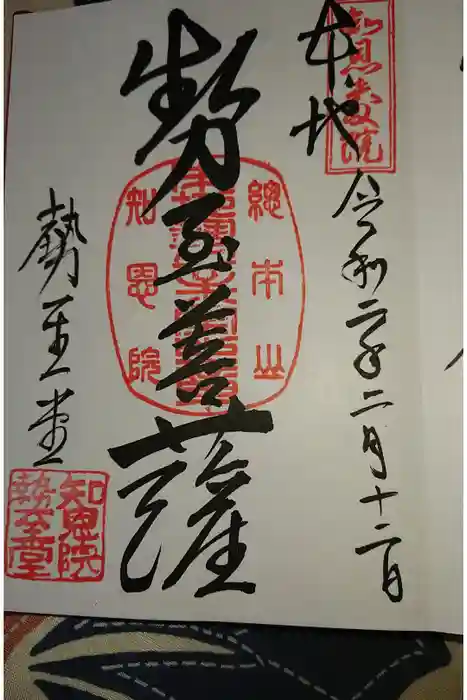 本地
令和二年二月十二日
勢至菩薩
總本山
知恩院
勢至堂
知恩院
勢至堂